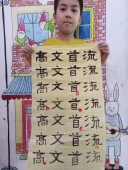 高文首流
高文首流
高文首流
高文首流
高文首流
高文首流
高文首流